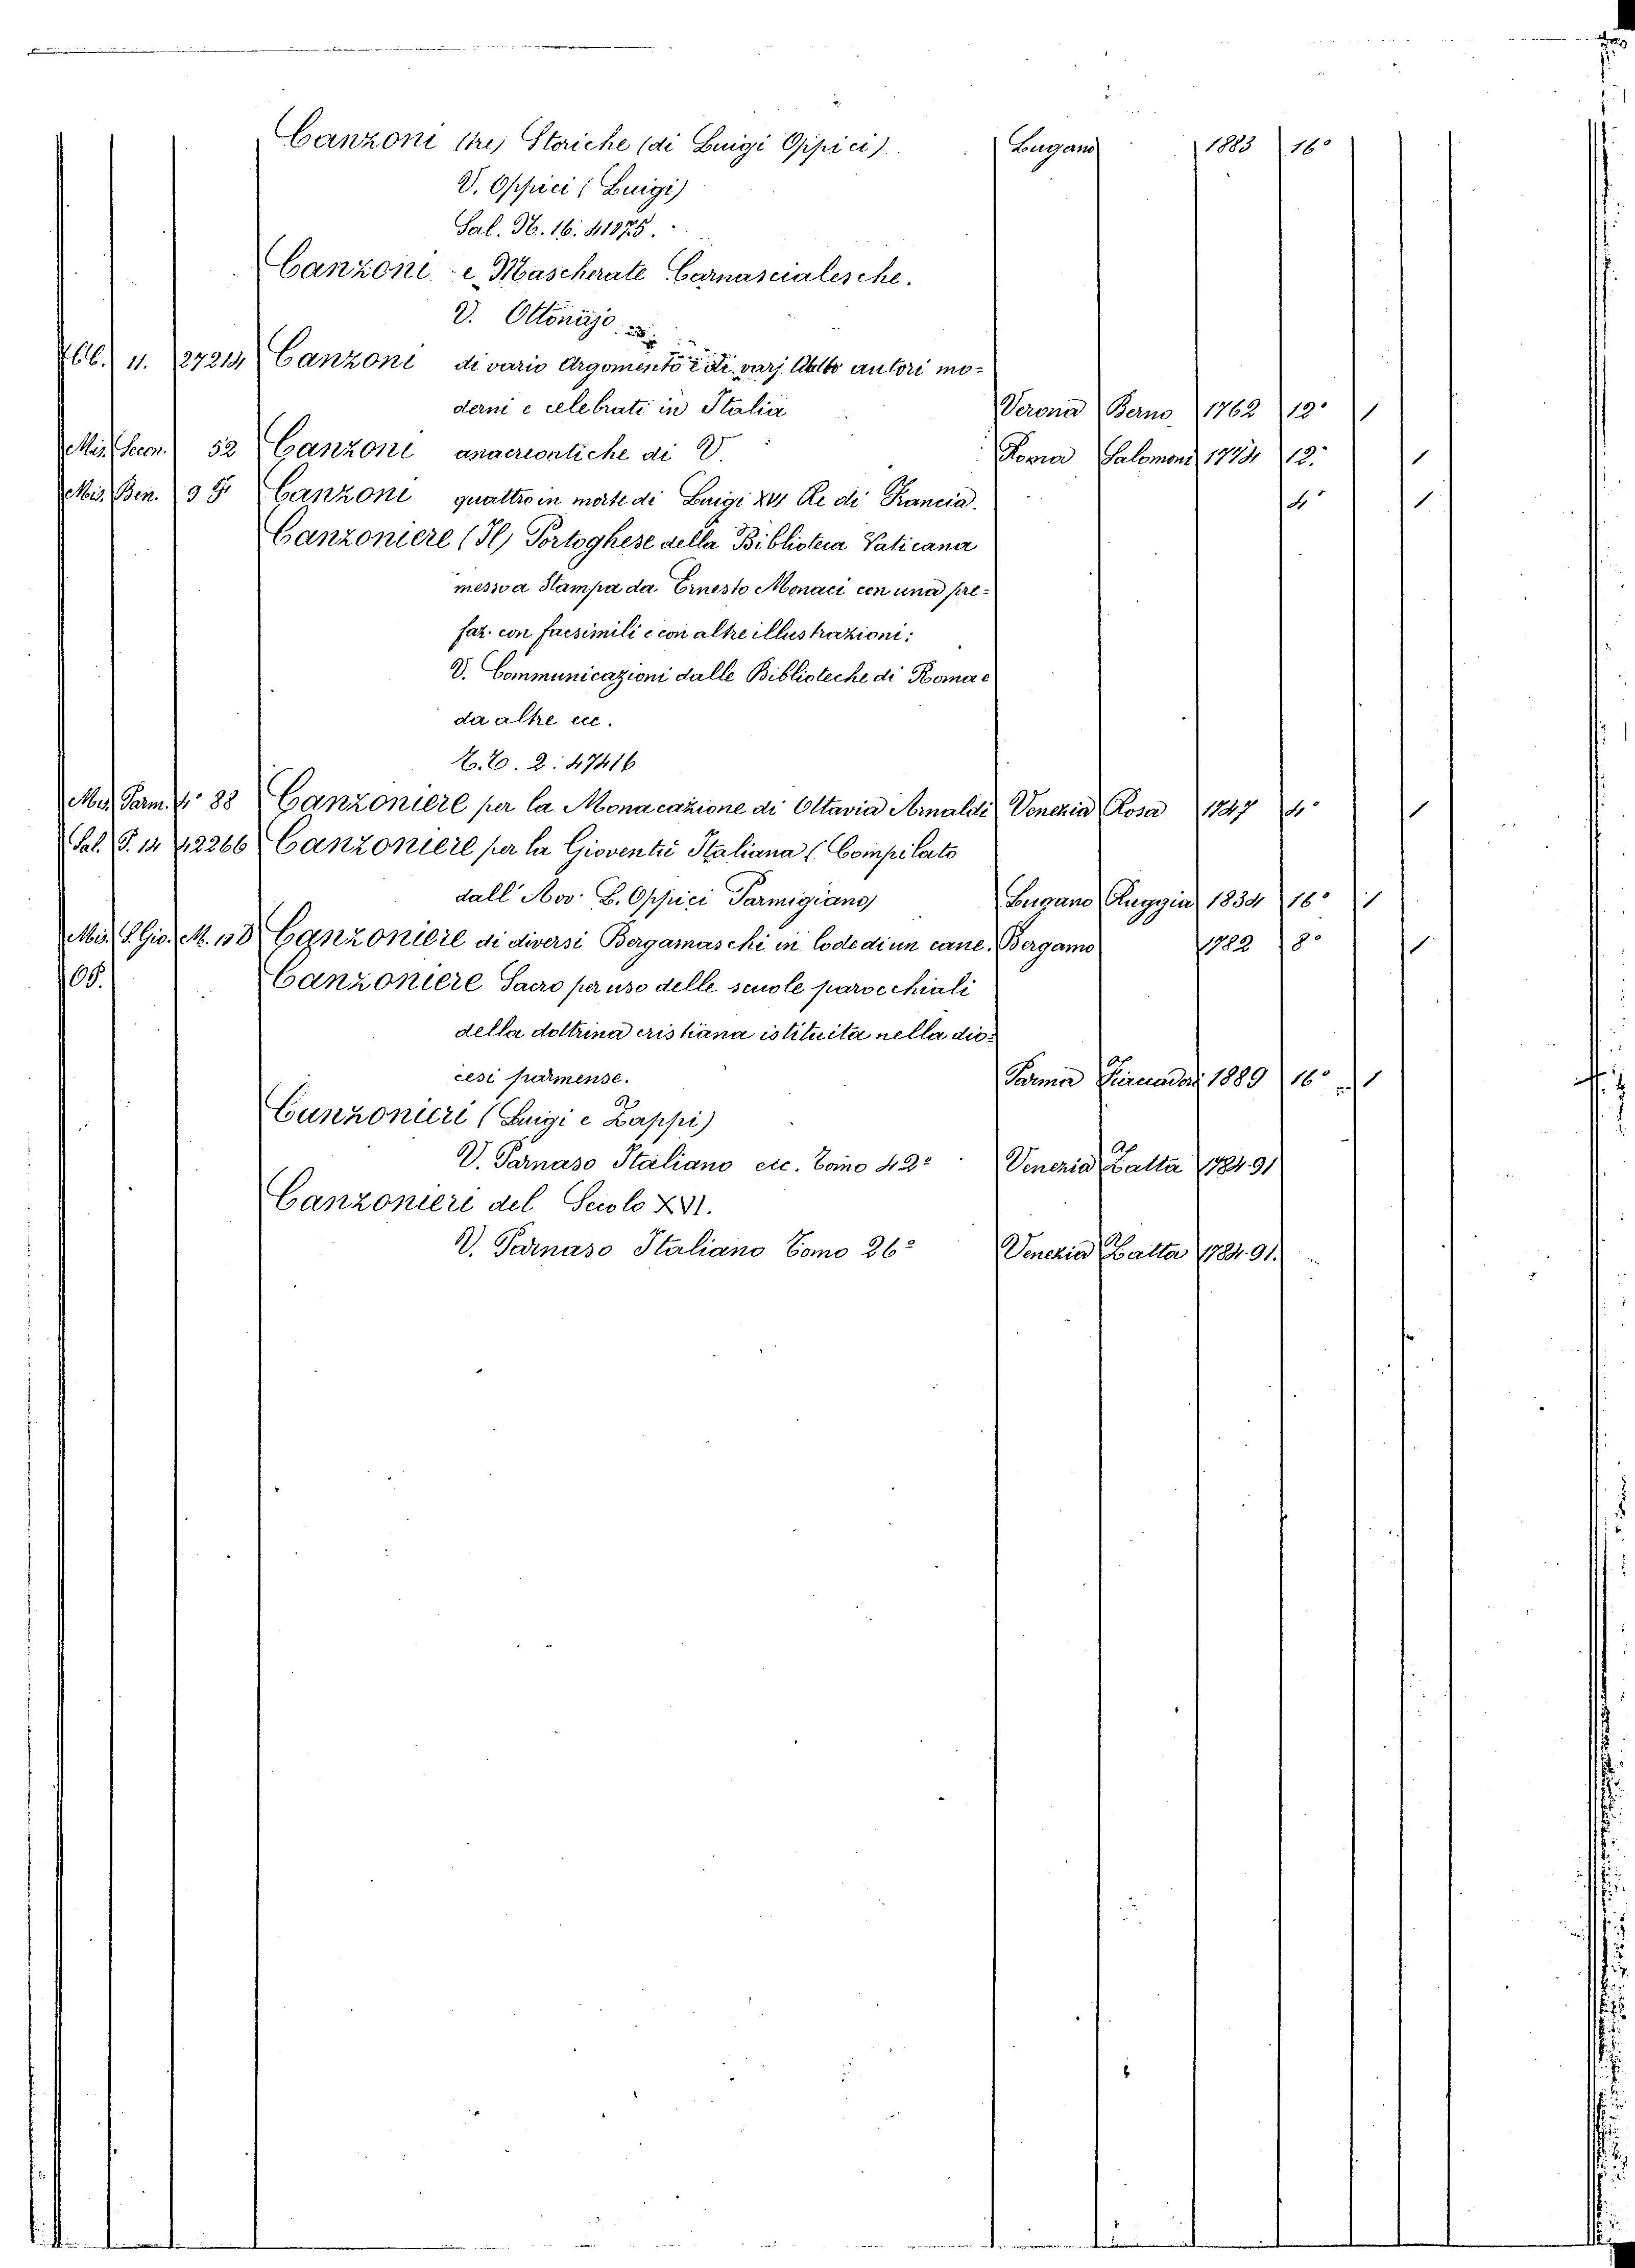 Canzoni (tre) Storiche (di Luigi Oppici) Lugano 1883 16°
V. Oppici (Luigi)
Sal. H. 16. 41875.
Canzoni e Mascherate Carnascialesche.
V. Ottonajo
11. 27214 Canzoni di vario Argomento e di varj autori mo-
derni e celebrati in Italia Verona Berno 1762 12° 1
Mis. 52 Canzoni anacreontiche di V. Roma Salomoni 1774 12. 1
Mis. Ben. Canzoni quattro in morte di Luigi XVI Re di Francia. 4° 1
Canzoniere (Il) Portoghese della Biblioteca Vaticana
messo a Stampa da Ernesto Monaci con una pre-
faz. con facsimili e con altre illustrazioni:
V. Communicazioni dalle Biblioteche di Roma e
da altre ecc.
2. 47416
Mis. Parm. 4° 88 Canzoniere per la Monacazione di Ottavia Arnaldi Venezia Rosa 1747 4° 1
Sal. P. 14 42266 Canzoniere per la Gioventù Italiana (Compilato
dall' Avv. L. Oppici Parmigiano) Lugano Ruggia 1834 16° 1
Mis. S. Gio. M. Canzoniere di diversi Bergamaschi in lode di un cane. Bergamo 1782 8° 1
Canzoniere Sacro per uso delle scuole parocchiali
della dottrina cristiana istituita nella dio-
cesi parmense. Parma Fiaccadori 1889 16° 1
Canzonieri (Luigi e Zappi)
V. Parnaso Italiano etc. Tomo 42° Venezia Zatta 1784-91
Canzonieri del Secolo XVI.
V. Parnaso Italiano Tomo 26° Venezia Zatta 1784-91.